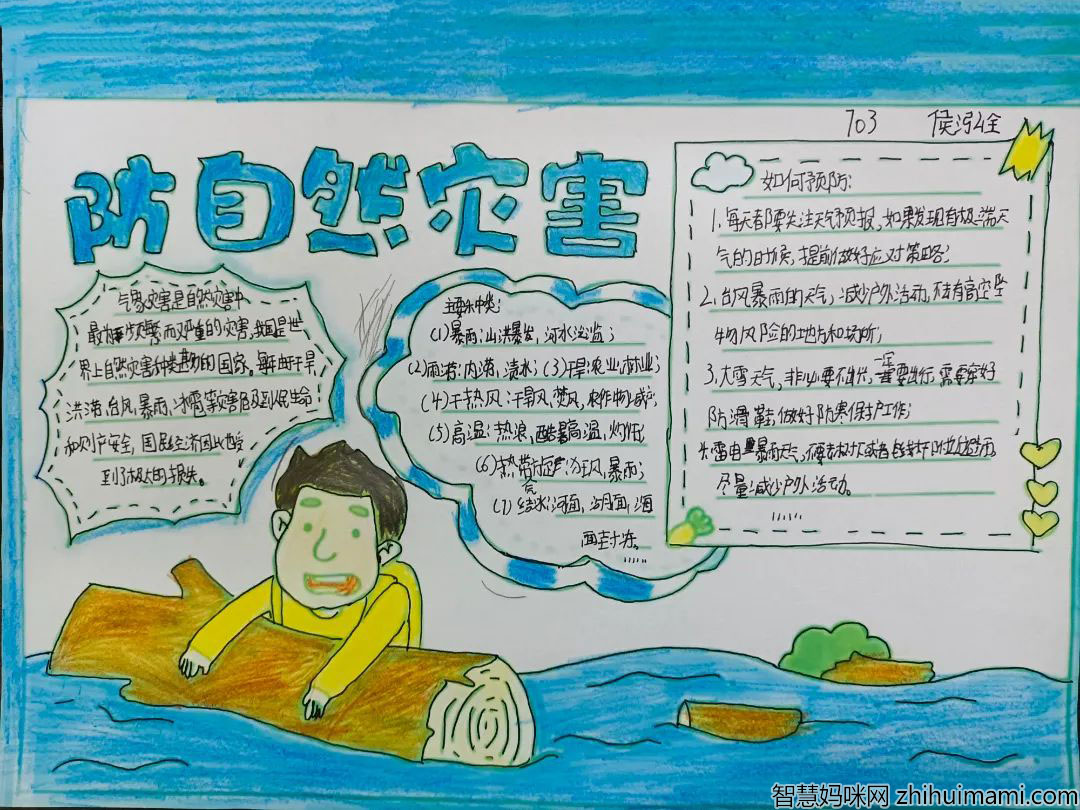 703 侯泓铨
防自然灾害
气象灾害是自然灾害中
最为频繁而又严重的灾害,我国是世
界上自然灾害种类最多的国家,每年由于干旱
洪涝,台风,暴雨,冰雹等灾害危及到人民生命
和财产安全,国民经济因此也受
到了极大的损失。
主要种类:
(1)暴雨:山洪暴发,河水泛滥;
(2)雨涝:内涝,渍水;(3)干旱:农业,林业;
(4)干热风:干旱风,焚风,农作物
(5)高温:热浪,酷暑高温,灼伤;
(6)热带气旋:狂风,暴雨;
(7)结冰:河面,湖面,海
面封冻。
......
如何预防:
1.每天都要关注天气预报,如果发现有极端天
气的时候,提前做好应对策略;
2.台风暴雨的天气,减少户外活动,不去有高空坠
物风险的地方和场所;
3.大雪天气,非必要不出行,一定要出行,需要穿好
防滑鞋,做好防寒保护工作;
4.雷电暴雨天气,不要去树下或者电线杆附近避雨,
尽量减少户外活动。
......
智慧妈咪网 zhihuimami.com